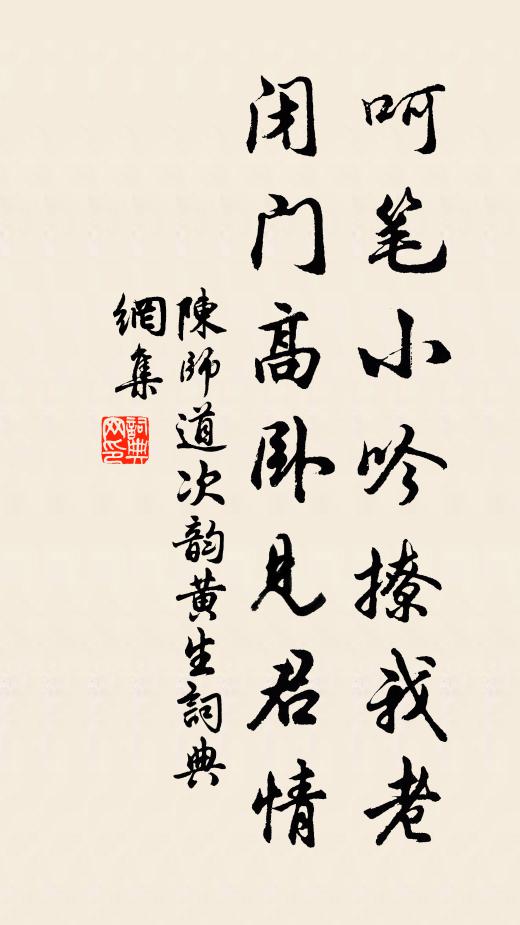 呵笔小吟撩我老
闭门高卧见君情
陳師道次韵黄生詞典
網集
詞典网印